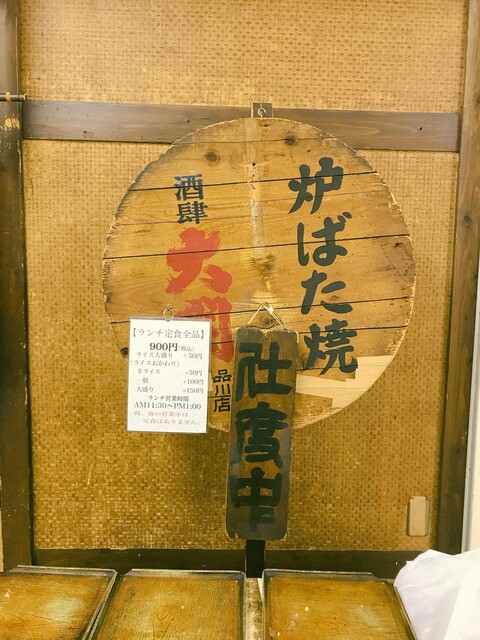 炉ばた焼
酒肆
大
品川店
仕度中
【ランチ定食全品】
900円(税込)
ライス大盛り +50円
(ライスおかわり)
半ライス +50円
一膳 +100円
大盛り +150円
ランチ営業時間
AM11:30~PM1:00
尚、夜の営業中は
定食はありません。